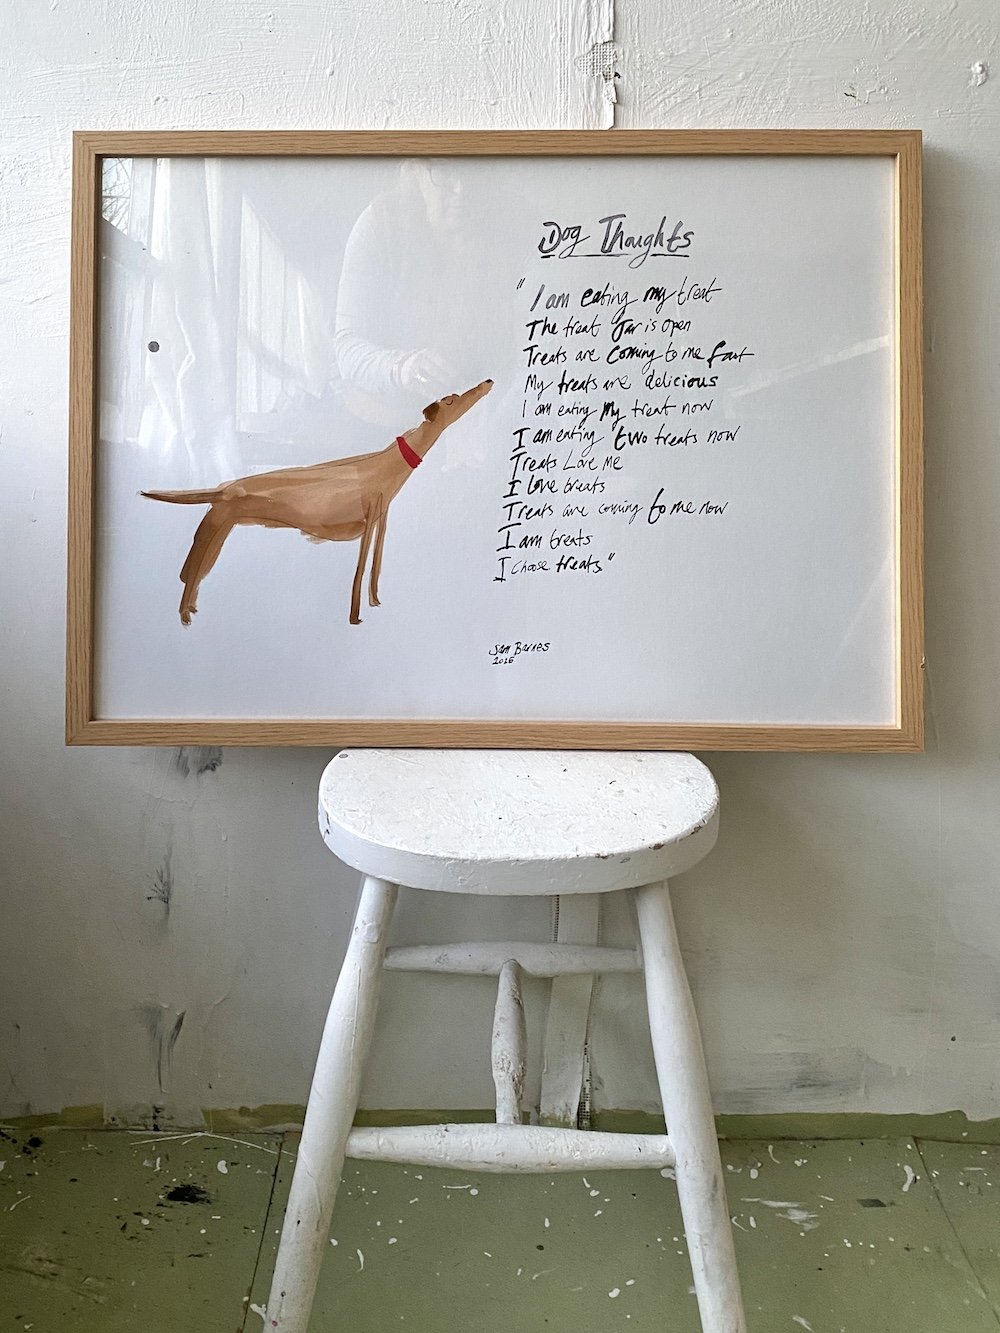 Dog Thoughts
"I am eating my treat
The treat Jar is open
Treats are coming to me fast
My treats are delicious
I am eating my treat now
I am eating two treats now
Treats Love Me
I love treats
Treats are coming to me now
I am treats
I choose treats"
Sam Barnes